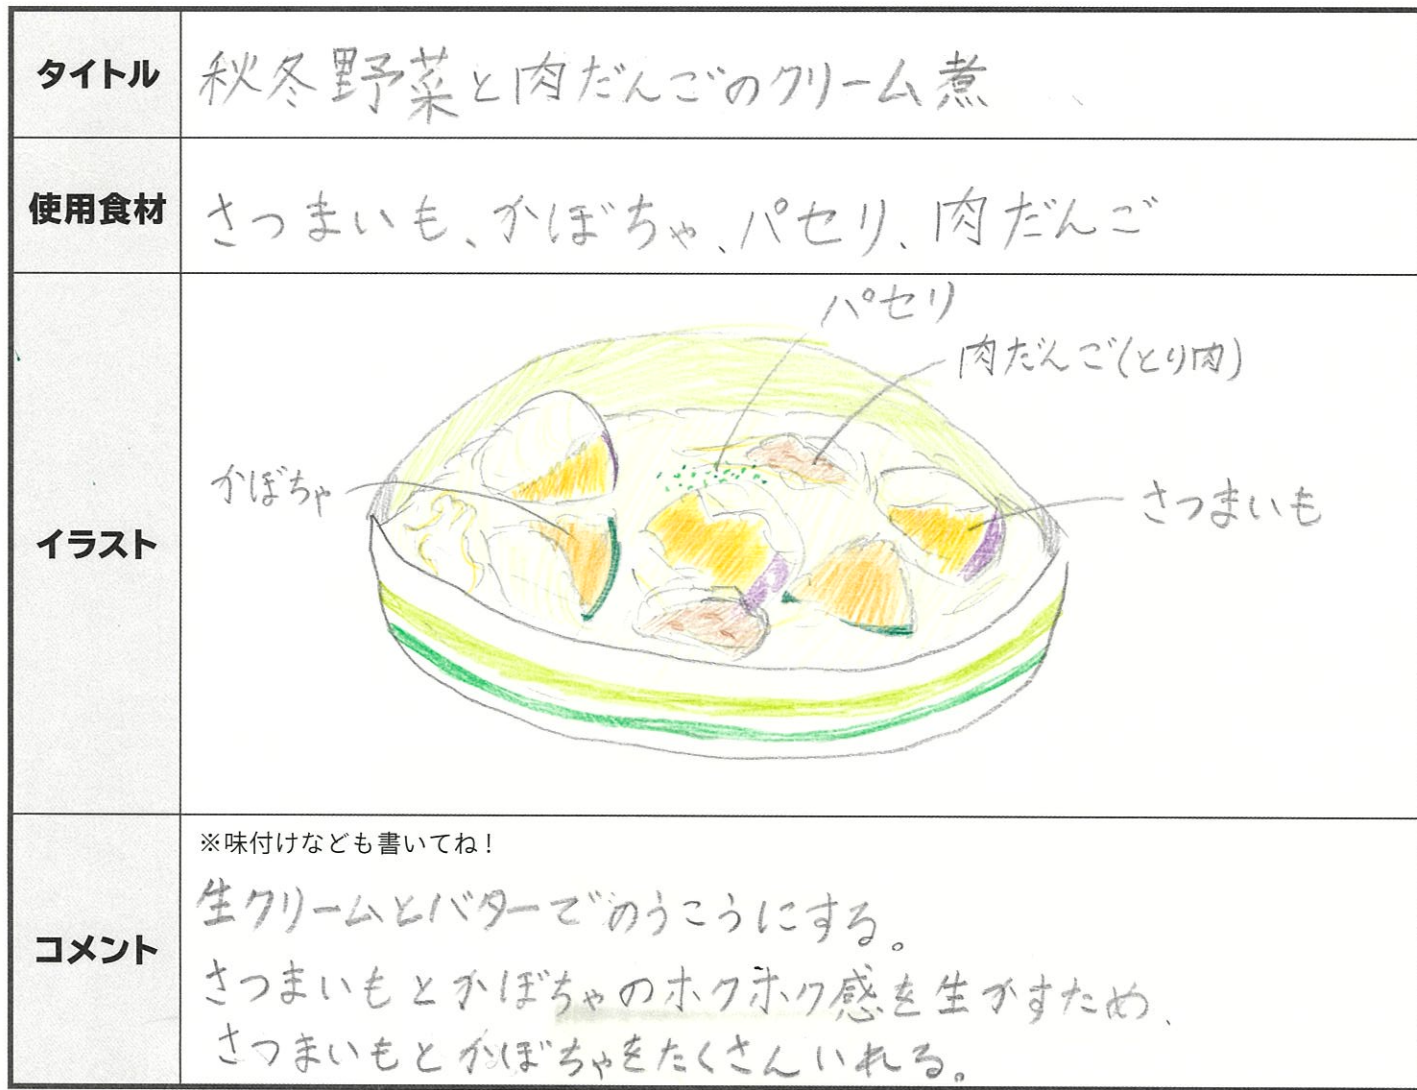 タイトル
秋冬野菜と肉だんごのクリーム煮
使用食材
さつまいも、かぼちゃ、パセリ、肉だんご
イラスト
パセリ
肉だんご(とり肉)
かぼちゃ
さつまいも
コメント
※味付けなども書いてね!
生クリームとバターでのうこうにする。
さつまいもとかぼちゃのホクホク感を生かすため、
さつまいもとかぼちゃをたくさんいれる。